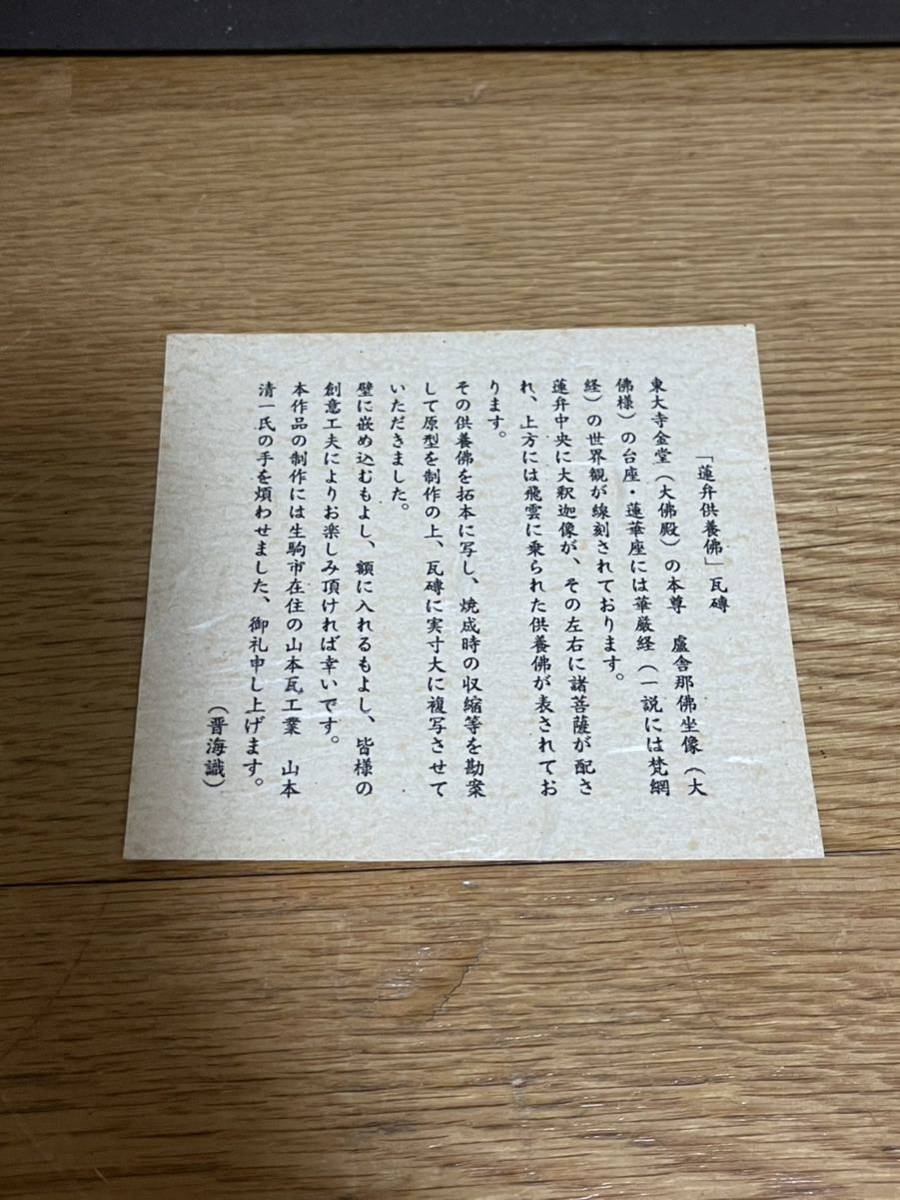 「蓮弁供養佛」瓦磚
東大寺金堂（大佛殿）の本尊　盧舎那佛坐像（大
佛様）の台座・蓮華座には華厳経（一説には梵網
経）の世界観が線刻されております。
蓮弁中央に大釈迦像が、その左右に諸菩薩が配さ
れ、上方には飛雲に乗られた供養佛が表されてお
ります。
その供養佛を拓本に写し、焼成時の収縮等を勘案
して原型を制作の上、瓦磚に実寸大に複写させて
いただきました。
壁に嵌め込むもよし、額に入れるもよし、皆様の
創意工夫によりお楽しみ頂ければ幸いです。
本作品の制作には生駒市在住の山本瓦工業　山本
清一氏の手を煩わせました、御礼申し上げます。
（晋海識）